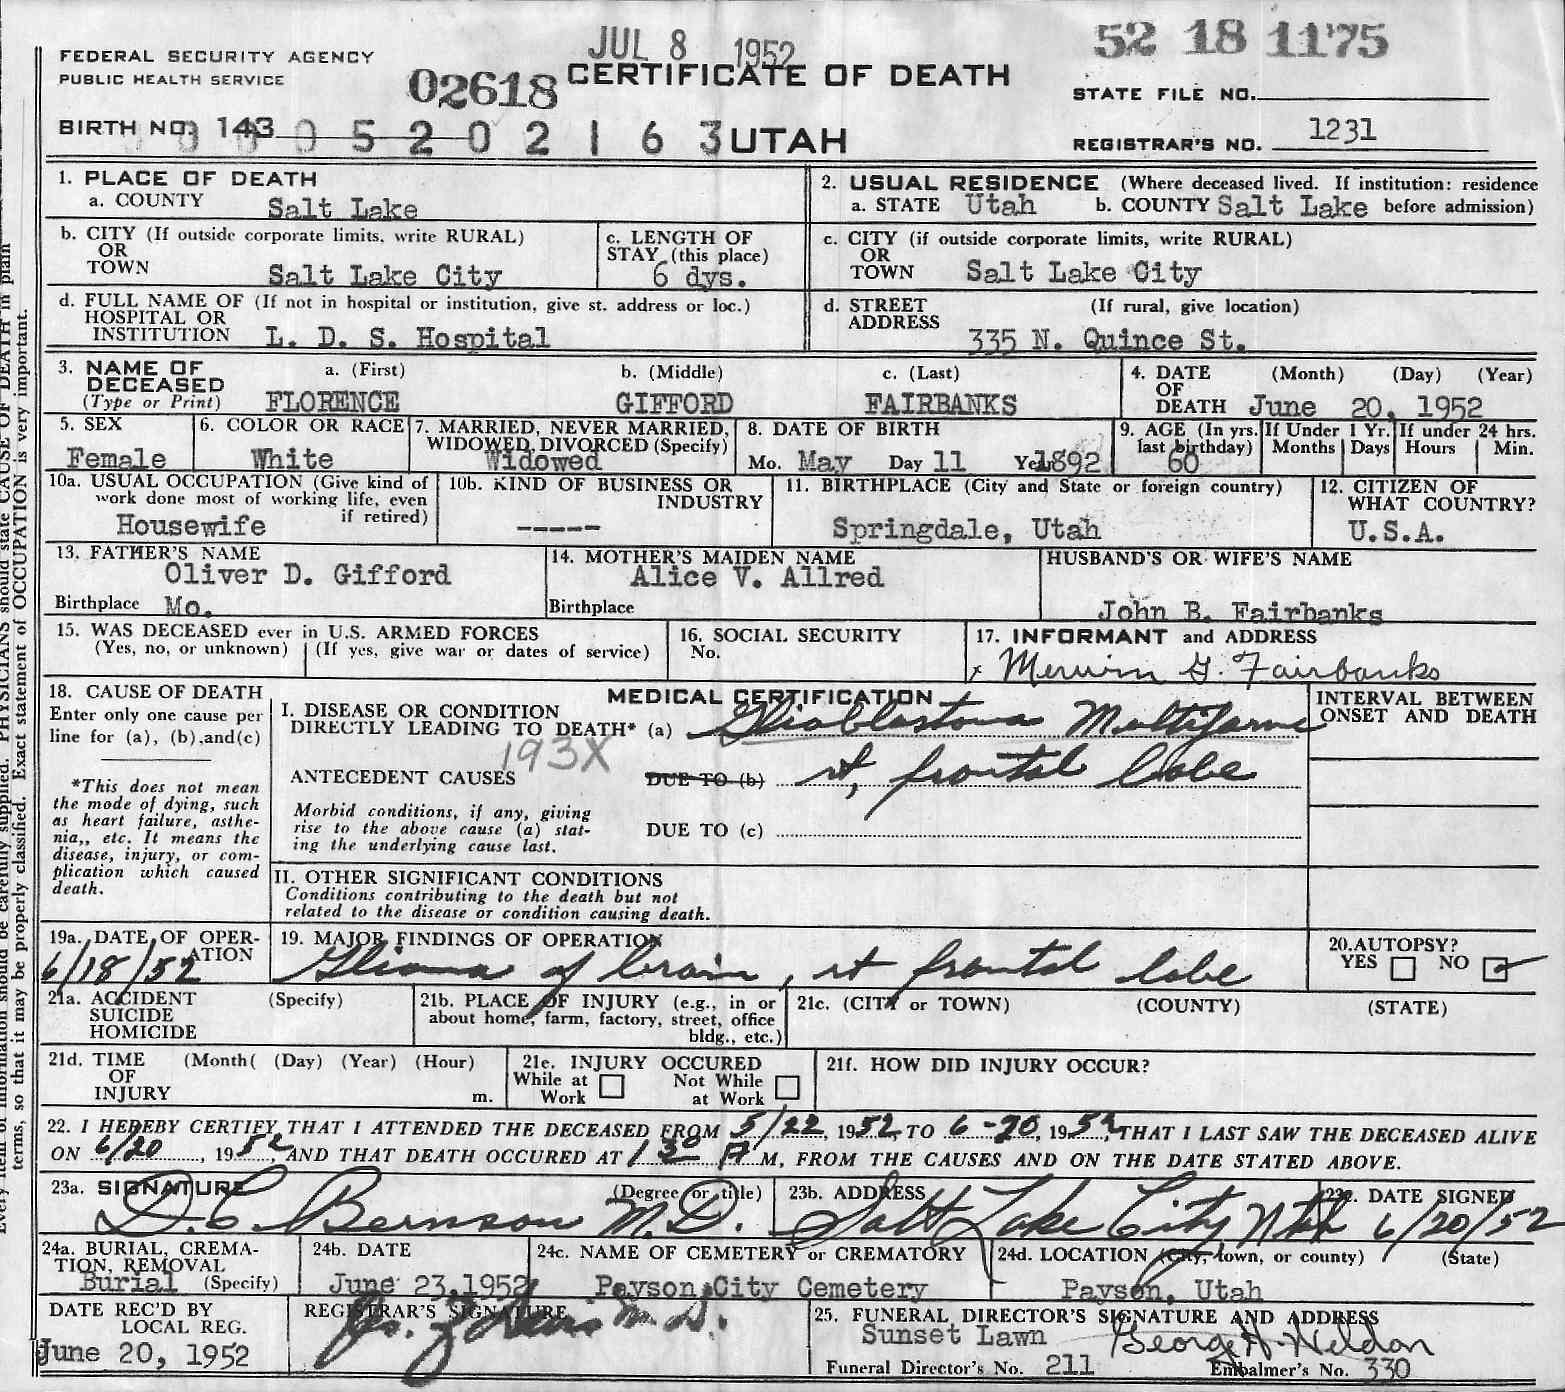 JUL 8 1952
52 18 1175
FEDERAL SECURITY AGENCY
PUBLIC HEALTH SERVICE
02618
CERTIFICATE OF DEATH
STATE FILE NO.
BIRTH NO. 143
5 2 0 2 1 6 3
UTAH
REGISTRAR'S NO. 1231
1. PLACE OF DEATH
a. COUNTY Salt Lake
2. USUAL RESIDENCE (Where deceased lived. If institution: residence
a. STATE Utah b. COUNTY Salt Lake before admission)
b. CITY (If outside corporate limits, write RURAL)
OR
TOWN Salt Lake City
c. LENGTH OF
STAY (this place)
6 dys.
c. CITY (if outside corporate limits, write RURAL)
OR
TOWN Salt Lake City
d. FULL NAME OF (If not in hospital or institution, give st. address or loc.)
HOSPITAL OR
INSTITUTION L. D. S. Hospital
d. STREET (If rural, give location)
ADDRESS 335 N. Quince St.
3. NAME OF DECEASED
(Type or Print)
a. (First) b. (Middle) c. (Last)
FLORENCE GIFFORD FAIRBANKS
4. DATE OF DEATH (Month) (Day) (Year)
June 20, 1952
5. SEX
Female
6. COLOR OR RACE
White
7. MARRIED, NEVER MARRIED,
WIDOWED, DIVORCED (Specify)
Widowed
8. DATE OF BIRTH
Mo. May Day 11 Yr. 1892
9. AGE (In yrs. last birthday)
60
If Under 1 Yr.
Months Days
If under 24 hrs.
Hours Min.
10a. USUAL OCCUPATION (Give kind of
work done most of working life, even
if retired)
Housewife
10b. KIND OF BUSINESS OR
INDUSTRY
-----
11. BIRTHPLACE (City and State or foreign country)
Springdale, Utah
12. CITIZEN OF
WHAT COUNTRY?
U.S.A.
13. FATHER'S NAME
Oliver D. Gifford
Birthplace Mo.
14. MOTHER'S MAIDEN NAME
Alice V. Allred
Birthplace
HUSBAND'S OR WIFE'S NAME
John B. Fairbanks
15. WAS DECEASED ever in U.S. ARMED FORCES
(Yes, no, or unknown) (If yes, give war or dates of service)
16. SOCIAL SECURITY
No.
17. INFORMANT and ADDRESS
x Merwin G. Fairbanks
18. CAUSE OF DEATH
Enter only one cause per
line for (a), (b), and(c)
*This does not mean
the mode of dying, such
as heart failure, asthe-
nia,, etc. It means the
disease, injury, or com-
plication which caused
death.
MEDICAL CERTIFICATION
INTERVAL BETWEEN
ONSET AND DEATH
I. DISEASE OR CONDITION
DIRECTLY LEADING TO DEATH* (a) Glioblastoma Multiforme
193X
ANTECEDENT CAUSES DUE TO (b) rt, frontal lobe
Morbid conditions, if any, giving
rise to the above cause (a) stat-
ing the underlying cause last.
DUE TO (c)
II. OTHER SIGNIFICANT CONDITIONS
Conditions contributing to the death but not
related to the disease or condition causing death.
19a. DATE OF OPER-
ATION
6/18/52
19. MAJOR FINDINGS OF OPERATION
Glioma of brain, rt frontal lobe
20. AUTOPSY?
YES NO
21a. ACCIDENT (Specify)
SUICIDE
HOMICIDE
21b. PLACE OF INJURY (e.g., in or
about home, farm, factory, street, office
bldg., etc.)
21c. (CITY or TOWN) (COUNTY) (STATE)
21d. TIME (Month( (Day) (Year) (Hour)
OF
INJURY m.
21e. INJURY OCCURED
While at Work Not While at Work
21f. HOW DID INJURY OCCUR?
22. I HEREBY CERTIFY THAT I ATTENDED THE DECEASED FROM 5/22, 1952, TO 6-20, 1952, THAT I LAST SAW THE DECEASED ALIVE
ON 6/20, 1952 AND THAT DEATH OCCURED AT 1 30 A M, FROM THE CAUSES AND ON THE DATE STATED ABOVE.
23a. SIGNATURE (Degree or title)
D. C. Bernson M.D.
23b. ADDRESS
Salt Lake City Utah
23c. DATE SIGNED
6/20/52
24a. BURIAL, CREMA-
TION, REMOVAL
Burial (Specify)
24b. DATE
June 23, 1952
24c. NAME OF CEMETERY or CREMATORY
Payson City Cemetery
24d. LOCATION (City, town, or county) (State)
Payson, Utah
DATE REC'D BY
LOCAL REG.
June 20, 1952
REGISTRAR'S SIGNATURE
M.D.
25. FUNERAL DIRECTOR'S SIGNATURE AND ADDRESS
Sunset Lawn George H. Weldon
Funeral Director's No. 211 Embalmer's No. 330
terms, so that it may be properly classified. Exact statement of OCCUPATION is very important.